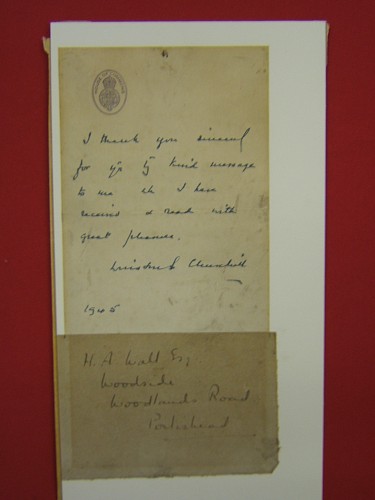 HOUSE OF COMMONS
I thank you sincerely
for yr vy kind message
to me wh I have
received & read with
great pleasure.
Winston S. Churchill
1945
H. A. Wall Esq
Woodside
Woodlands Road
Portishead